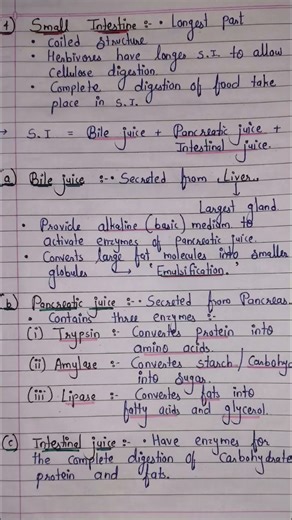 1) Small Intestine :- • Longest part
• Coiled structure
• Herbivores have longer S.I to allow
cellulose digestion.
• Complete digestion of food take
place in S.I.
→ S.I = Bile juice + Pancreatic juice +
Intestinal juice.
a) Bile juice :- • Secreted from Liver
Largest gland.
• Provide alkaline (basic) medium to
activate enzymes of pancreatic juice.
• Converts large fat molecules into smaller
globules → 'Emulsification.'
b) Pancreatic juice :- • Secreted from Pancreas.
• Contains three enzymes :-
(i) Trypsin :- Convertes protein into
amino acids.
(ii) Amylase :- Convertes starch / Carbohyd
into sugar.
(iii) Lipase :- Convertes fats into
fatty acids and glycerol.
c) Intestinal juice :- • Have enzymes for
the complete digestion of Carbohydrate
protein and fats.